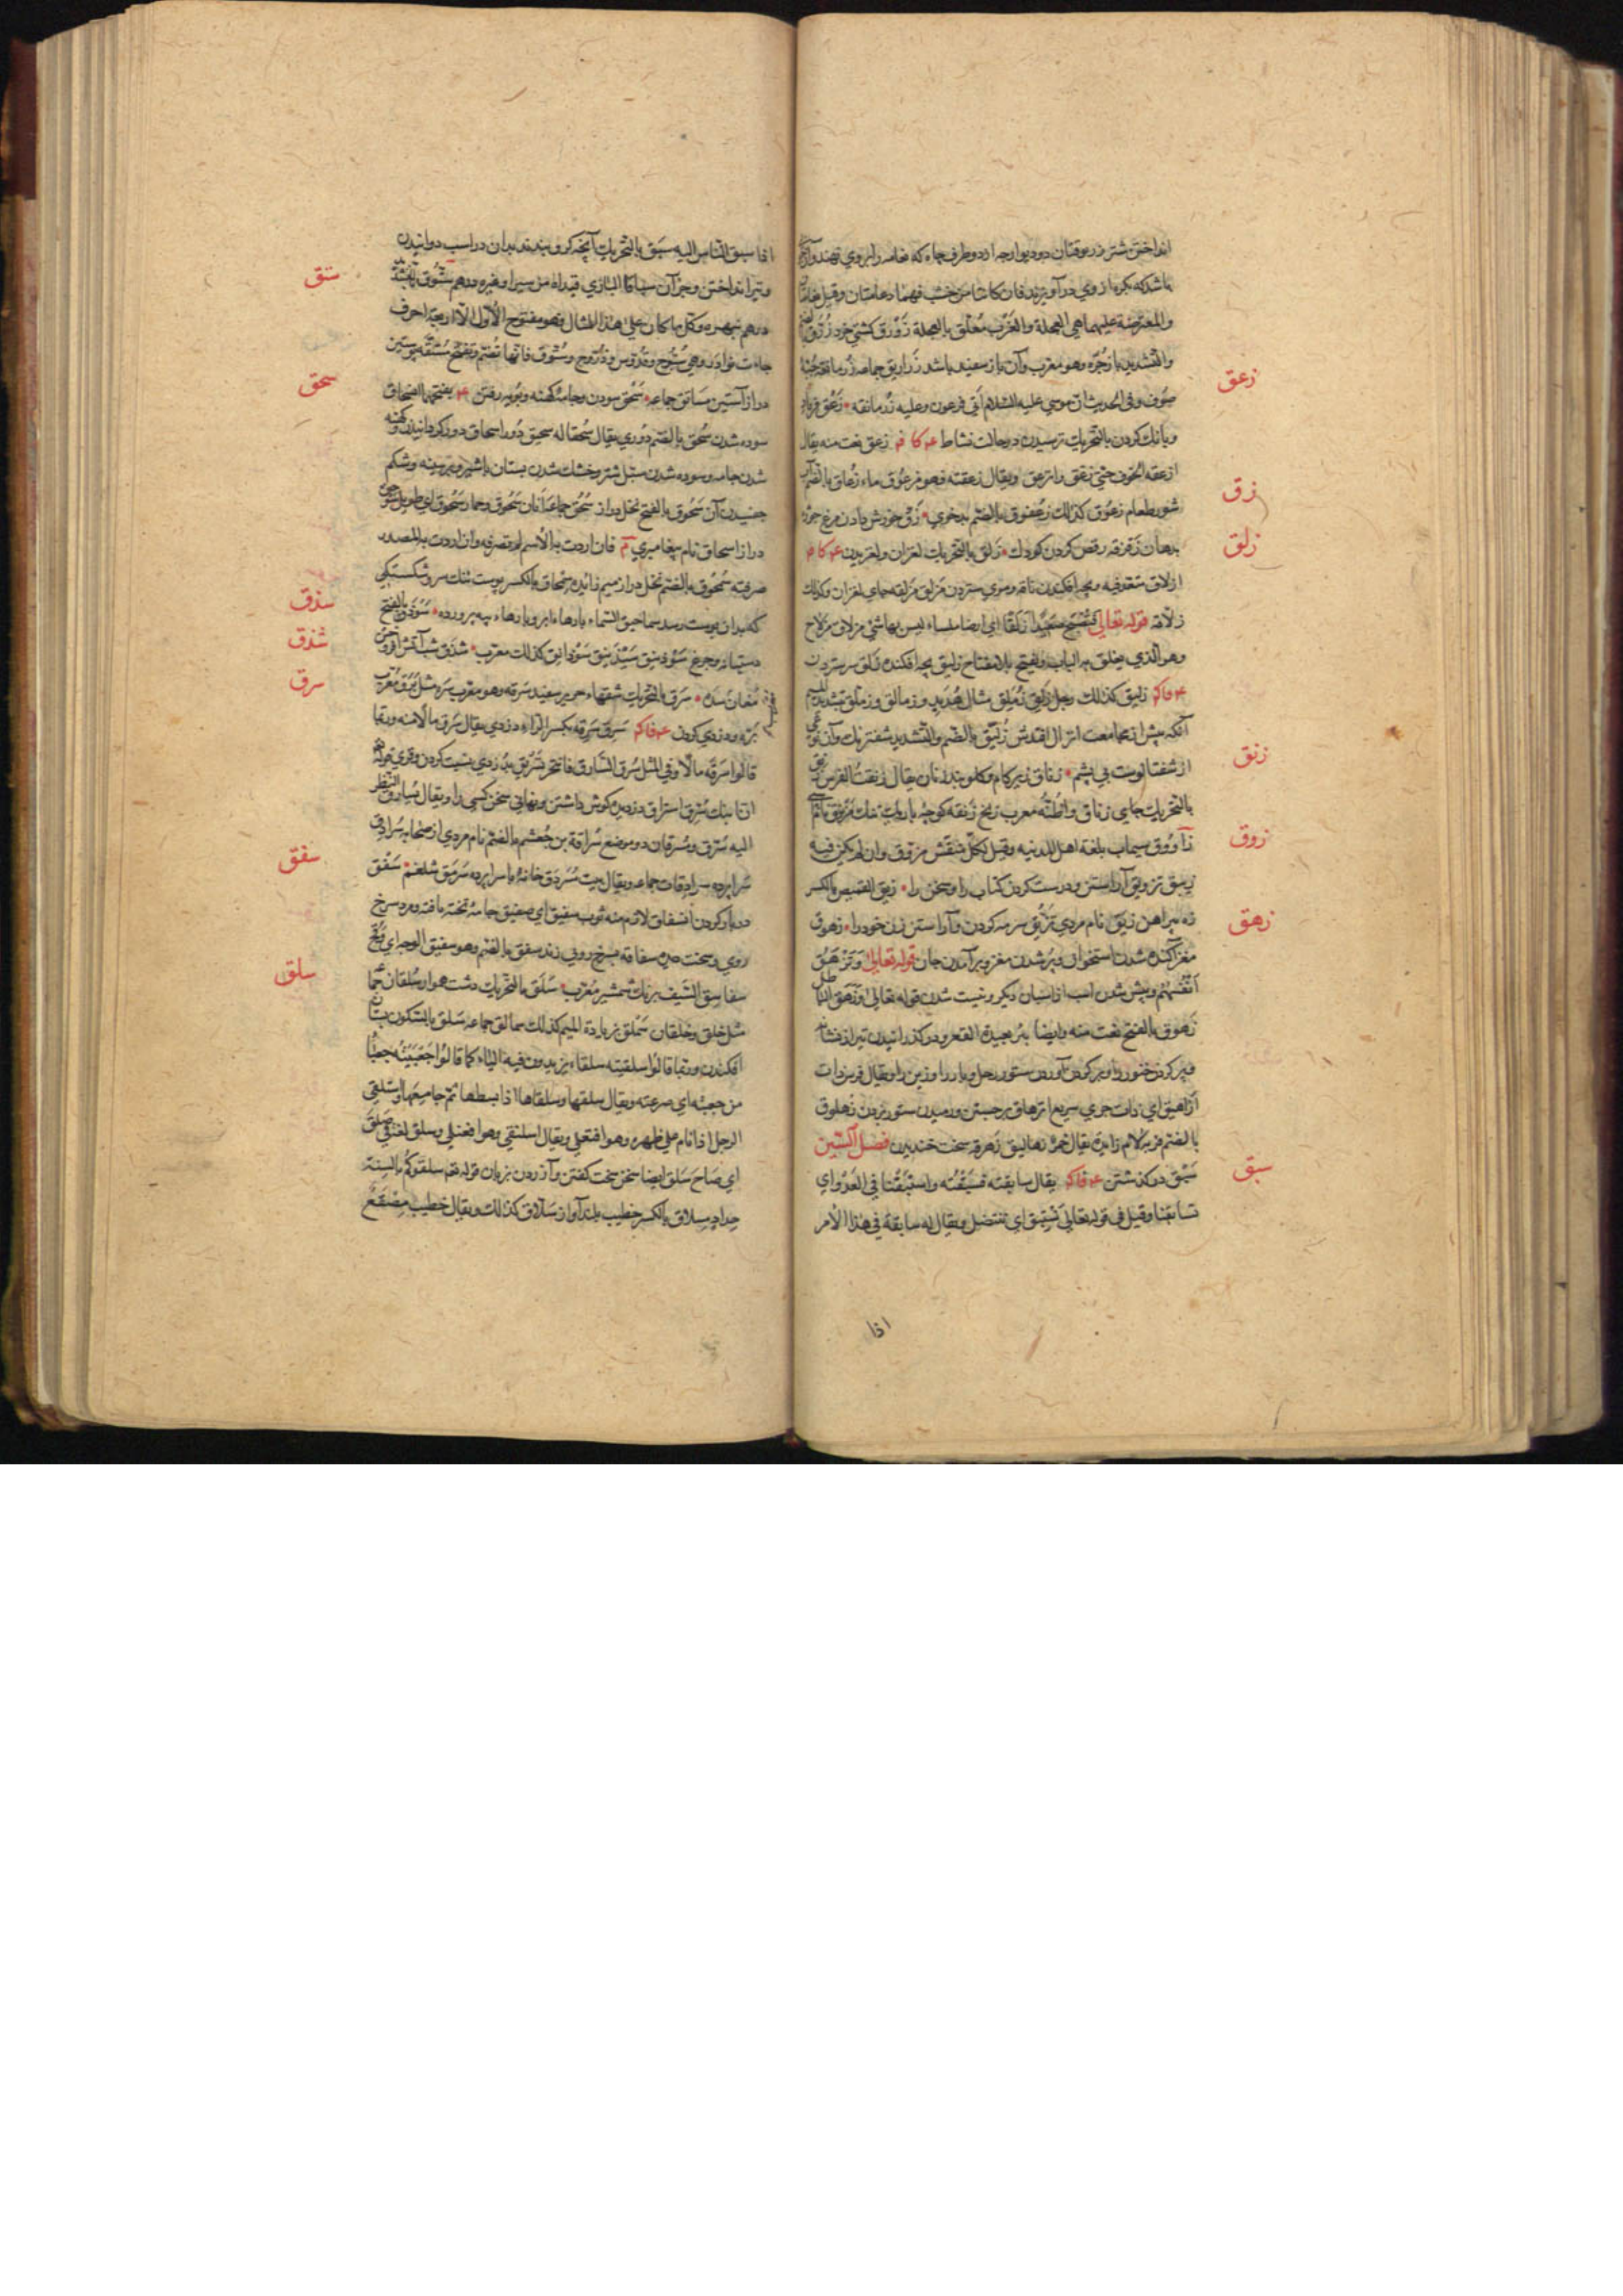 انداختن شتر زرنوقتان دو ديوارچه از دو طرف چاه كه نعامه را بر وي نهند وآن
باشد كه بكره از وي در آويزند فان كانتا من خشب فهما دعامتان وقيل نعامتان
والمعترضة عليهما هي العجلة والغرب معلق بالعجلة زورق كشتي خرد زرق بالضم
والتشديد باز جره وهو معرب وآن باز سفيد باشد زراريق جماعه زرمانقة جبة
صوف وفي الحديث ان موسي عليه السلام اتي فرعون وعليه زرمانقه زعق فرياد
زعق
وبانك كردن بالتحريك ترسيدن در حالت نشاط زعق نعت منه يقال
ازعقه الخوف حتي زعق وانزعق ويقال زعقته فهو مزعوق ماء زعاق بالضم آب
شور طعام زعوق كذلك زعقوق بالضم بدخوي زق خورش دادن مرغ جوزه
زق
بدهان زقزقه رقص كردن كودك زلق بالتحريك لغزان ولغزيدن
زلق
ازلاق متعد فيه وبچه افكندن ناقه وموي ستردن مزلق مزلقه جاي لغزان وكذلك
زلاقه قوله تعالي فتصبح صعيدا زلقا اي ارضا ملساء ليس بها شئ مزلاق مزلاج
وهو الذي يغلق به الباب ويفتح بلا مفتاح زليق بچه افكنده زلق سر ستردن
زليق كذلك رجل زلق زملق مثال هدبد وزمالق وزملق بتشديد الميم
آنكه پيش از مجامعت انزال افتدش زليق بالضم والتشديد شفترنك وآن نوعي
از شفتالوست بي پشم زناق زير كام وكلوبند زنان يقال زنقت الفرس زنق
زنق
بالتحريك جاي زناق
زاووق سيماب بلغة اهل المدينه وقيل لكل منقش مزوق وان لم يكن فيه
زوق
زيبق تزويق آراستن ودرست كردن كتاب را وسخن را زيق القميص بالكسر
زه پيراهن زيق نام مردي تزيق سرمه كردن وآراستن زن خود را زهوق
زهق
مغز آكنده شدن استخوان وپر شدن مغز وبر آمدن جان قوله تعالي وتزهق
انفسهم وپيش شدن اسب از اسبان ديكر ونيست شدن قوله تعالي وزهق الباطل
زهوق بالفتح نعت منه وايضا بئر بعيدة القعر ودر كذرانيدن تير از نشانه
وپر كردن خنور را وبر كردن آوردن ستور رحل وبار را وزين را ويقال فرس ذات
ازاهيق اي ذات جري سريع انزهاق برجستن ورميدن ستور بزدن زهلوق
بالضم فربه كلام زائدة يقال حمر زهاليق زهزقه سخت خنديدن فصل السين
سبق در كذشتن يقال سابقته فسبقته واستبقنا في العدو اي
سبق
تسابقنا وقيل في قوله تعالي نستبق اي ننتضل ويقال له سابقة في هذا الامر
اذا
اذا سبق الناس اليه سبق بالتحريك آنچه كرو بندند بدان در اسپ دوانيدن
وتير انداختن وجز آن سباقا البازي قيداه من سير او غيره درهم ستوق بالتشديد
ستق
درهم نبهره وكل ما كان علي هذا المثال فهو مفتوح الاول الا اربعة احرف
جاءت نوادر وهي سبوح وقدوس وذروح وستوق فانها تضم وتفتح مستقه پوستين
دراز آستين مساتق جماعه سحق سودن وجامه كهنه وپويه رفتن بفتحهما انسحاق
سحق
سوده شدن سحق بالضم دوري يقال سحقا له سحيق دور اسحاق دور كردانيدن وكهنه
شدن جامه وسوده شدن سبل شتر وخشك شدن پستان باشير وبر سينه وشكم
چفسيدن آن سحوق بالفتح نخل دراز سحق جماعه اتان سحوق وحمار سحوق اي طويل
دراز اسحاق نام پيغامبري فان اردت به الاسم لم تصرفه وان اردت به المصدر
صرفته سمحوق بالضم نخل دراز ميم زائده سمحاق بالكسر پوست تنك سر وشكستكي
كه بدان پوست رسد سماحيق السماء پارهاء ابر وپارهاء پيه بر روده سوذق بالفتح
سذق
دستيانه وچرغ سوذنيق سيذنيق سوذانق كذلك معرب شذق شب آتش افروختن
شذق
مغان سده سرق بالتحريك شقهاء حرير سفيد سرقه وهو معرب سره مثل يرق معرب
سرق
بره ودزدي كردن سرق سرقه بكسر الراء دزدي يقال سرق مالا منه وربما
قالوا سرقه مالا وفي المثل سرق السارق فانتحر تسريق بدزدي نسبت كردن وقري قوله
ان ابنك سرق استراق دزديدن كوش داشتن ونهاني سخن كسي را ويقال يسارق النظر
اليه سرق وسرقان دو موضع سراقة بن جعشم بالضم نام مردي از صحابه سرادق
سراپرده سرادقات جماعه ويقال بيت مسردق خانه با سراپرده سرمق شلغم سفق
سفق
در باز كردن انسفاق لازم منه ثوب سفيق اي صفيق جامه تخته بافته ومرد سرخ
روي وسخت سفاقه سفق بالضم وهو سفيق الوجه اي وقح
سفاسق السيف برنك شمشير معرب سلق بالتحريك دشت هموار سلقان جماعه
سلق
مثل خلق وخلقان سملق بزيادة الميم كذلك سمالق جماعه سلق بالسكون بستان
افكندن وربما قالوا سلقيته سلقاء يزيدون فيه الياء كما قالوا جعبيته جعباء
من جعبته اي صرعته ويقال سلقها وسلقاها اذا بسطها ثم جامعها واستلقي
الرجل اذا نام علي ظهره وهو افتعل ويقال اسلنقي وهو افعنلي وسلق لغة في صلق
اي صاح سلق ايضا سخن سخت كفتن وآزردن بزبان قوله تعالي سلقوكم بالسنة
حداد سلاق بالكسر خطيب بلند آواز سلاق كذلك ويقال خطيب مصقع